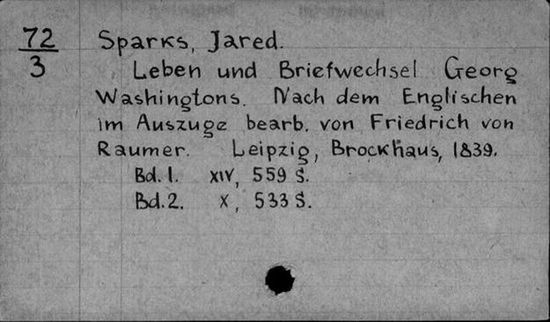 72
3
Sparks, Jared.
Leben und Briefwechsel Georg
Washingtons. Nach dem Englischen
im Auszuge bearb. von Friedrich von
Raumer. Leipzig, Brockhaus, 1839.
Bd. 1. XIV, 559 S.
Bd. 2. X, 533 S.